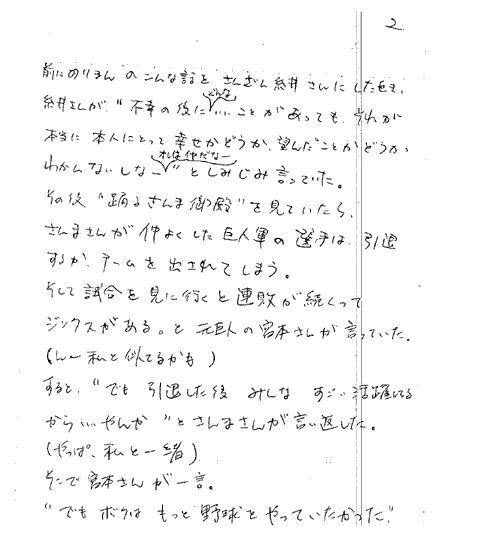 2
前にのりまん のこんな話を さんざん 糸井 さんに した時、
糸井さんが、"不幸の後に どんな いいことがあっても、それが
本当に 本人にとって 幸せかどうか、望んだことかどうか
わかんないしなー" それは仲だなー としみじみ言っていた。
その後 "踊るさんま御殿" を見ていたら、
さんまさんが 仲よくした 巨人軍の 選手は、引退
するか、チームを 出されてしまう。
そして 試合を 見に行くと 連敗が 続くって
ジンクスがある。と 元巨人の宮本さんが言っていた。
(んー 私と似てるかも)
すると、"でも 引退した後 みんな すごい活躍してる
からいいやんか" とさんまさんが言い返した。
(やっぱ、私と一緒)
そこで宮本さんが一言。
"でもボクは もっと 野球を やっていたかった"